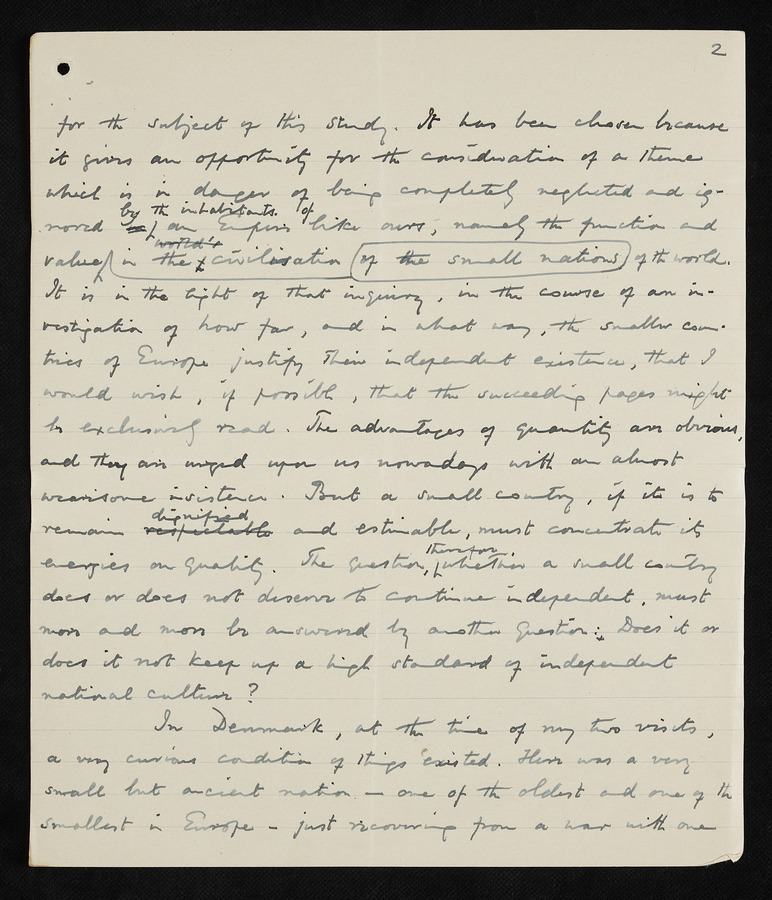 2
for the subject of this study. It has been chosen because
it gives an opportunity for the consideration of a theme
which is in danger of being completely neglected and ig-
by the inhabitants of
nored an Empire like ours, namely the function and
world's
value in the civilisation of the small nations of the world.
It is in the light of that inquiry, in the course of an in-
vestigation of how far, and in what way, the smaller coun-
tries of Europe justify their independent existence, that I
would wish, if possible, that the succeeding pages might
be exclusively read. The advantages of quantity are obvious,
and they are urged upon us nowadays with an almost
wearisome insistence. But a small country, if it is to
dignified
remain respectable and estimable, must concentrate its
therefore,
energies on quality. The question, whether a small country
does or does not deserve to continue independent, must
more and more be answered by another question: Does it or
does it not keep up a high standard of independent
national culture?
In Denmark, at the time of my two visits,
a very curious condition of things existed. Here was a very
small but ancient nation — one of the oldest and one of the
smallest in Europe – just recovering from a war with one